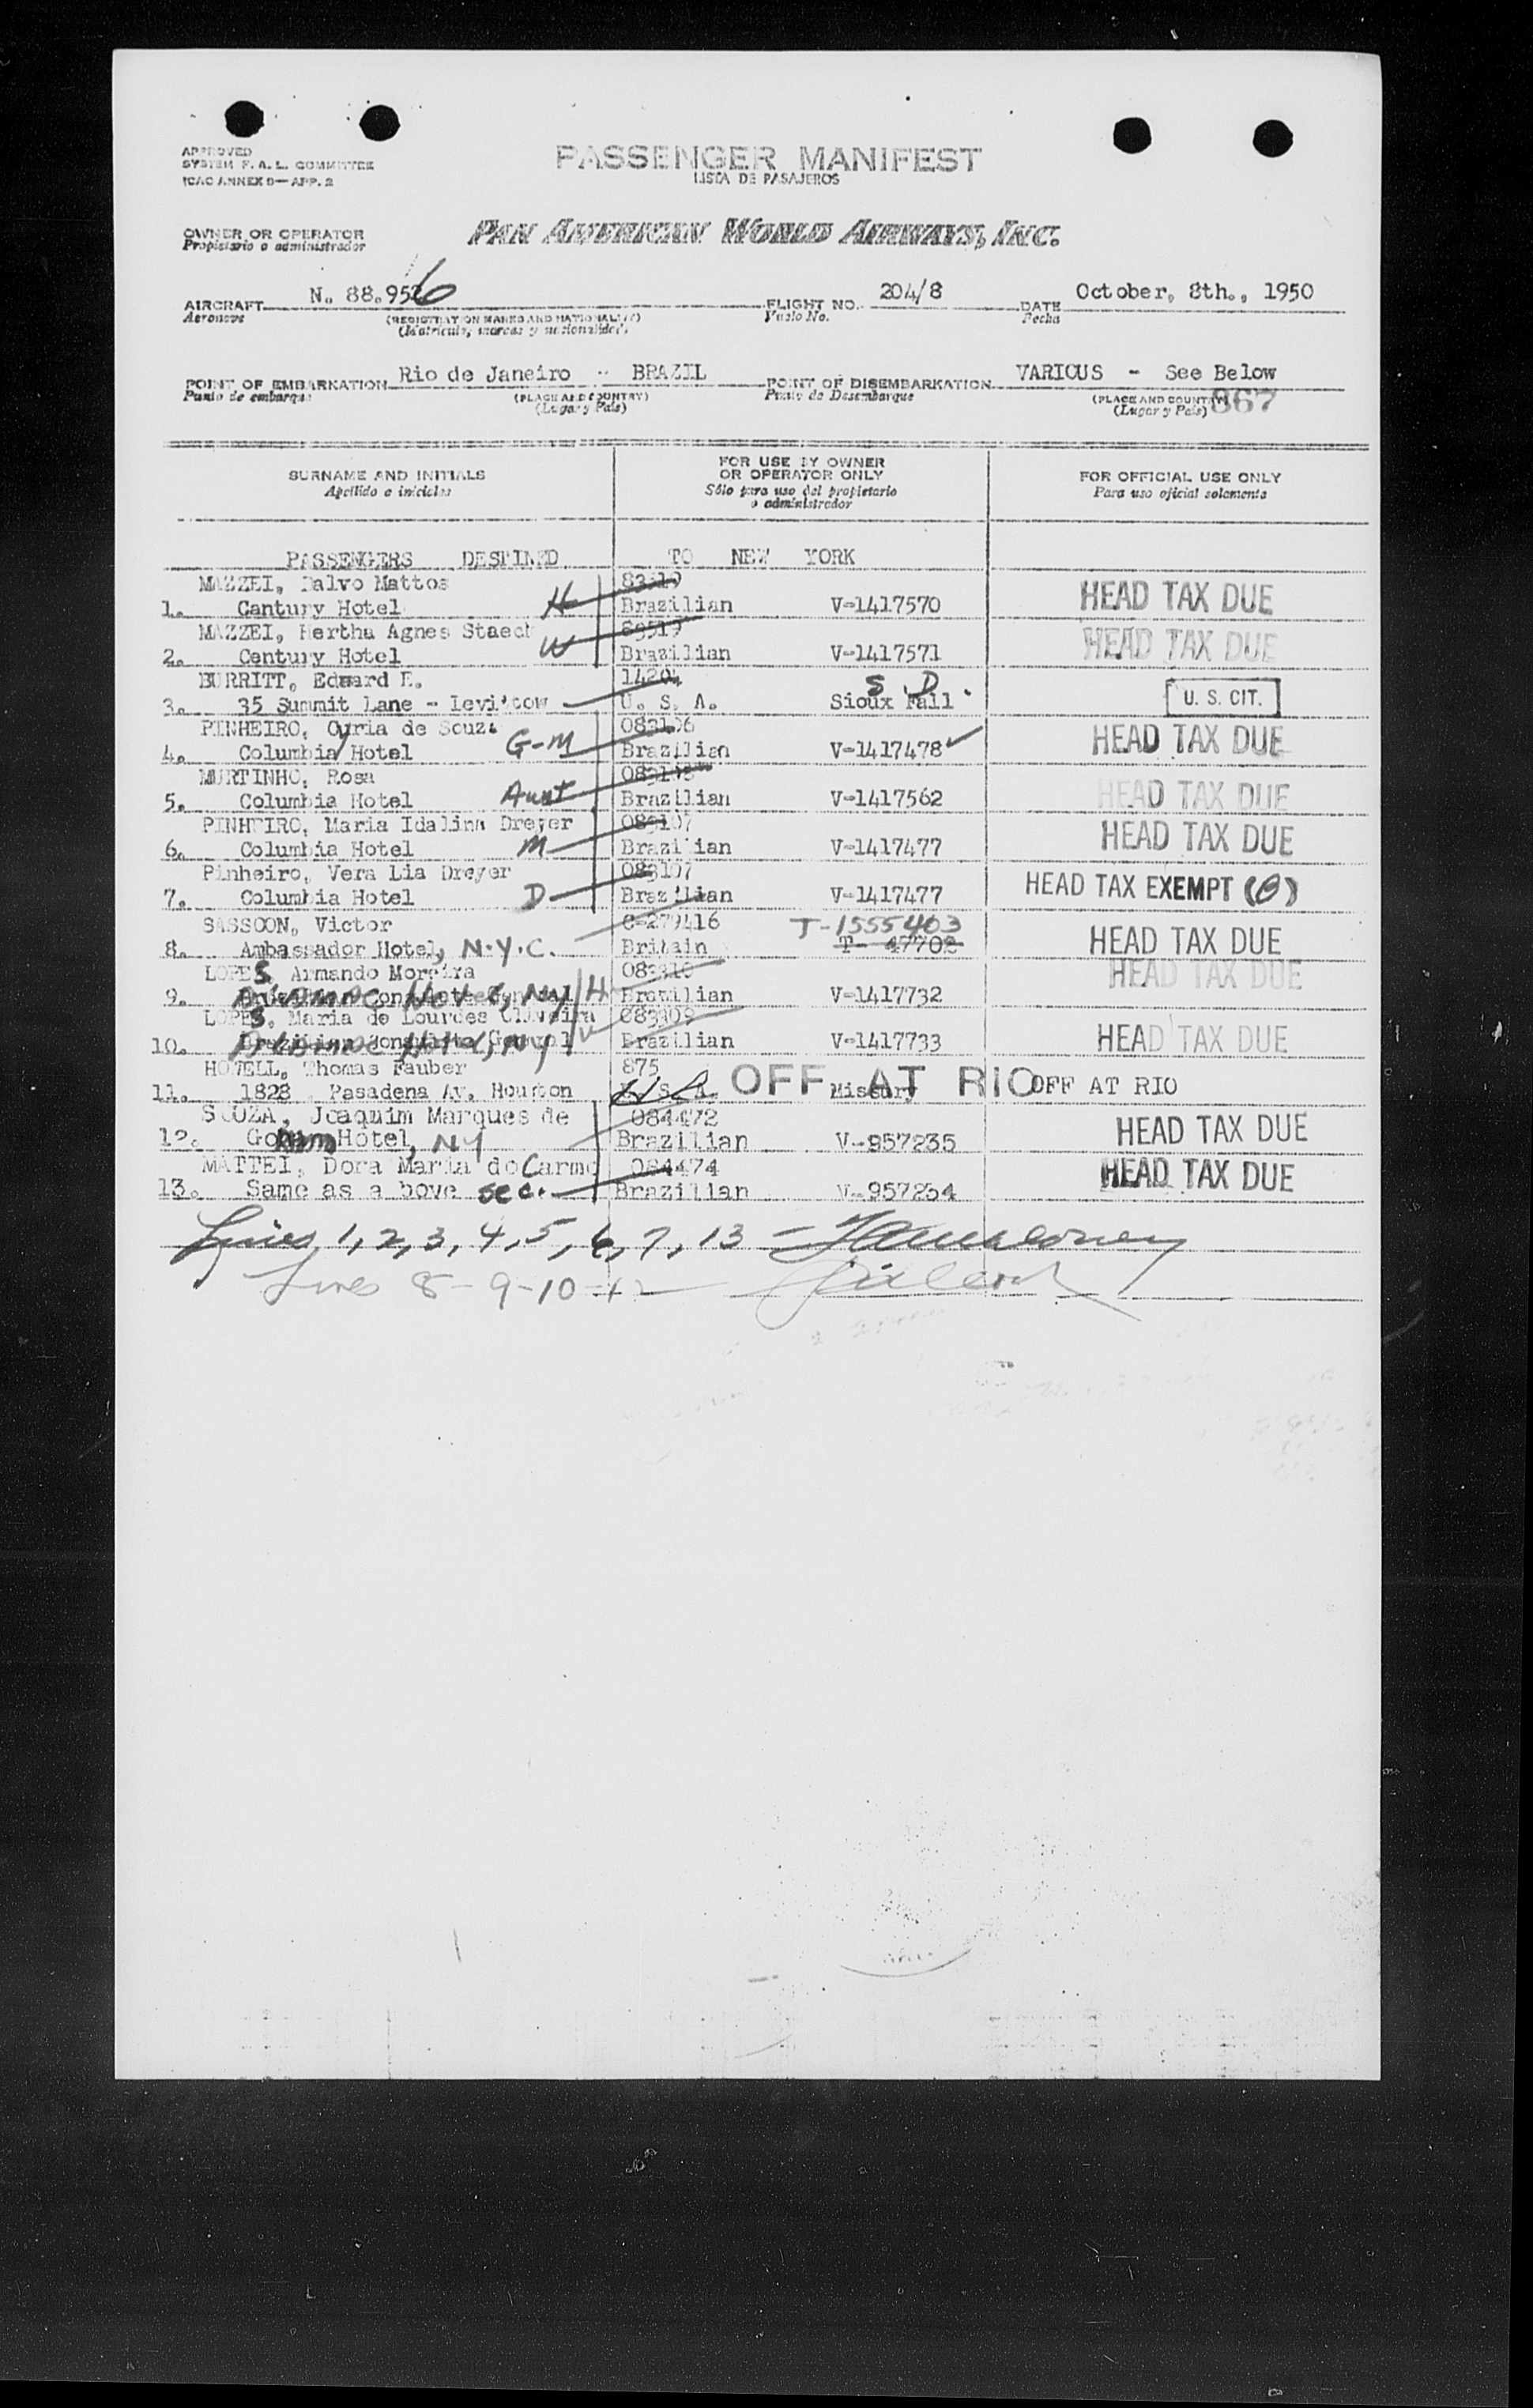 APPROVED
SYSTEM F. A. L. COMMITTEE
ICAO ANNEX 9—APP. 2
PASSENGER MANIFEST
LISTA DE PASAJEROS
OWNER OR OPERATOR
Propietario o administrador
PAN AMERICAN WORLD AIRWAYS, INC.
AIRCRAFT N. 88.956 FLIGHT NO. 204/8 DATE October, 8th., 1950
Aeronave (REGISTRATION MARKS AND NATIONALITY) Vuelo No. Fecha
(Matricula, marcas y nacionalidad)
POINT OF EMBARKATION Rio de Janeiro - BRAZIL POINT OF DISEMBARKATION VARIOUS - See Below
Punto de embarque (PLACE AND COUNTRY) Punto de Desembarque (PLACE AND COUNTRY)
(Lugar y País) (Lugar y País) 867
SURNAME AND INITIALS FOR USE BY OWNER OR OPERATOR ONLY FOR OFFICIAL USE ONLY
Apellido e iniciales Sólo para uso del propietario o administrador Para uso oficial solamente
PASSENGERS DESTINED TO NEW YORK
MAZZEI, Dalvo Mattos 83519
1. Cantury Hotel H Brazilian V-1417570 HEAD TAX DUE
MAZZEI, Hertha Agnes Staech 83519
2. Century Hotel W Brazilian V-1417571 HEAD TAX DUE
BURRITT, Edward E. 14204 S.D.
3. 35 Summit Lane - Levi'tow U. S. A. Sioux Fall U. S. CIT.
PINHEIRO, Cyria de Souza 083106
4. Columbia Hotel G-M Brazilian V-1417478 HEAD TAX DUE
MURTINHO, Rosa
5. Columbia Hotel Aunt Brazilian V-1417562 HEAD TAX DUE
PINHEIRO, Maria Idalina Dreyer 083107
6. Columbia Hotel M Brazilian V-1417477 HEAD TAX DUE
Pinheiro, Vera Lia Dreyer 083107
7. Columbia Hotel D Brazilian V-1417477 HEAD TAX EXEMPT
SASSOON, Victor C-279416 T-1555403
8. Ambassador Hotel, N.Y.C. Britain T- 47702 HEAD TAX DUE
LOPES Armando Moreira 083310 HEAD TAX DUE
9. Hotel, NY H Brazilian V-1417732
LOPES, Maria de Lourdes Oliveira 083309
10. Hotel, NY W Brazilian V-1417733 HEAD TAX DUE
HOWELL, Thomas Fauber 875 OFF AT RIO
11. 1828 Pasadena Av. Houston U. S. A. Missury OFF AT RIO
SOUZA, Joaquim Marques de 084472
12. Hotel, NY Brazilian V-957235 HEAD TAX DUE
MATTEI, Dora Maria do Carmo 084474
13. Same as a bove sec. Brazilian V-957234 HEAD TAX DUE
Lines 1, 2, 3, 4, 5, 6, 7, 13 -
Lines 8-9-10-12